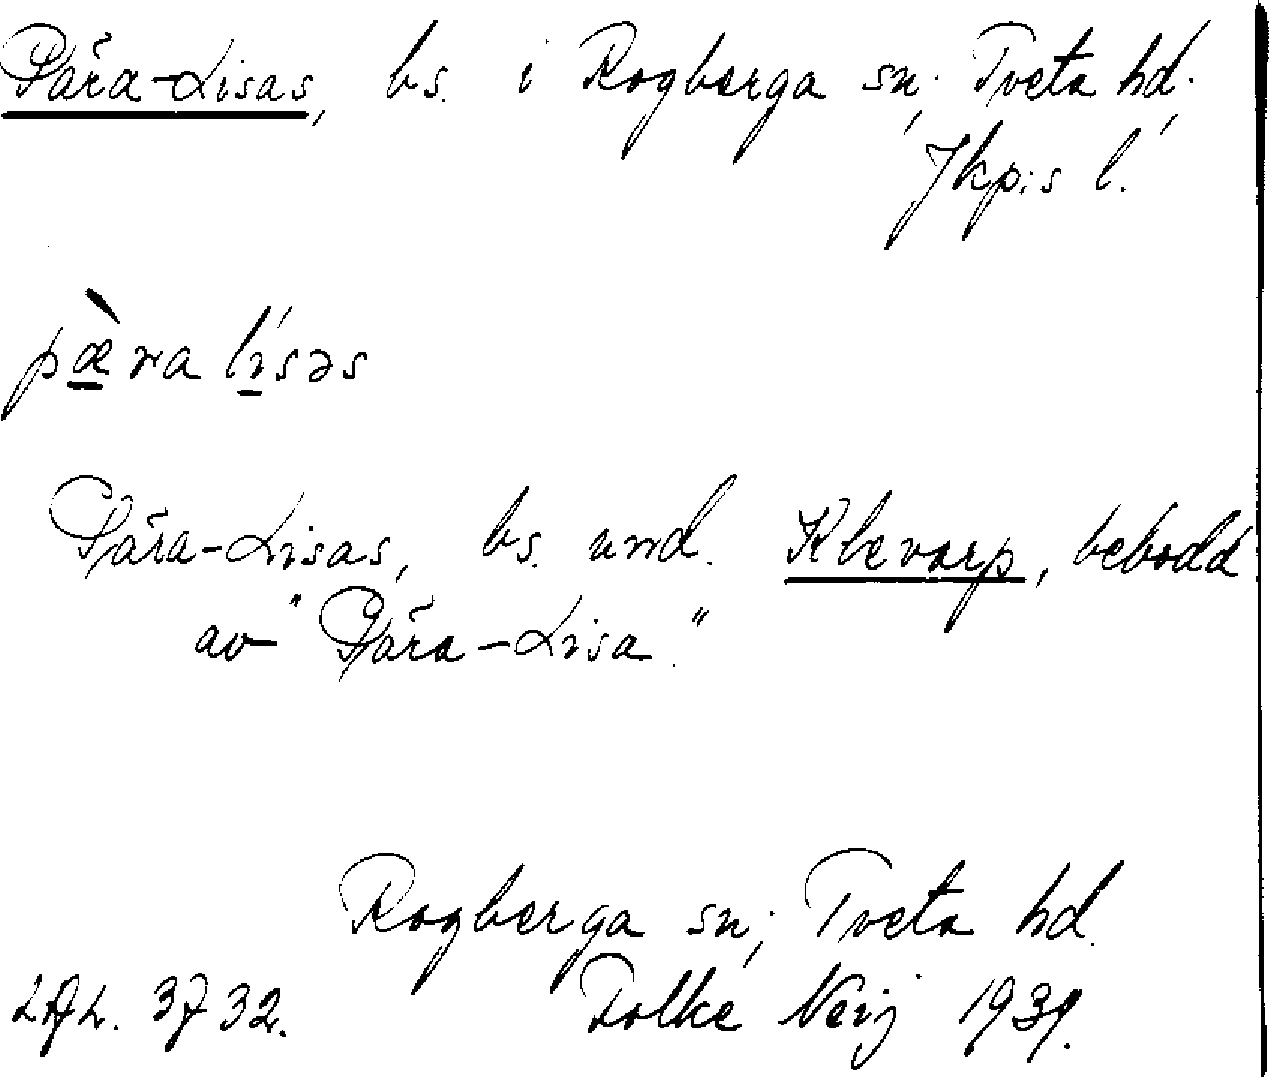 Pära-Lisas, bs. i Rogberga sn; Tveta hd;
Jkp:s l.
pæ̀ra lísəs
Pära-Lisas, bs. und. Klevarp, bebodd
av "Pära-Lisa."
Rogberga sn; Tveta hd.
Folke Neij 1939.